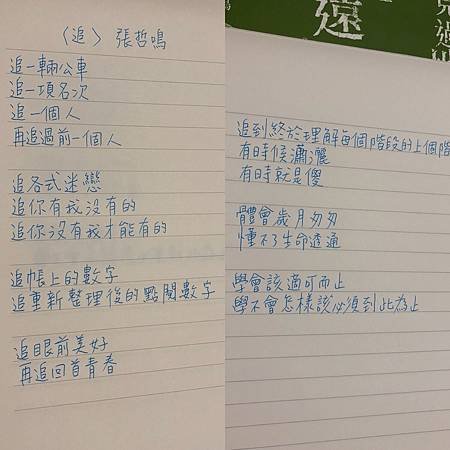 〈追〉 張哲鳴
追一輛公車
追一項名次
追一個人
再追過前一個人
追各式迷戀
追你有我沒有的
追你沒有我才能有的
追帳上的數字
追重新整理後的點閱數字
追眼前美好
再追回首青春
遠
追到終於理解每個階段的上個階
有時候瀟灑
有時就是傻
體會歲月匆匆
懂不了生命透通
學會該適可而止
學不會怎樣該必須到此為止